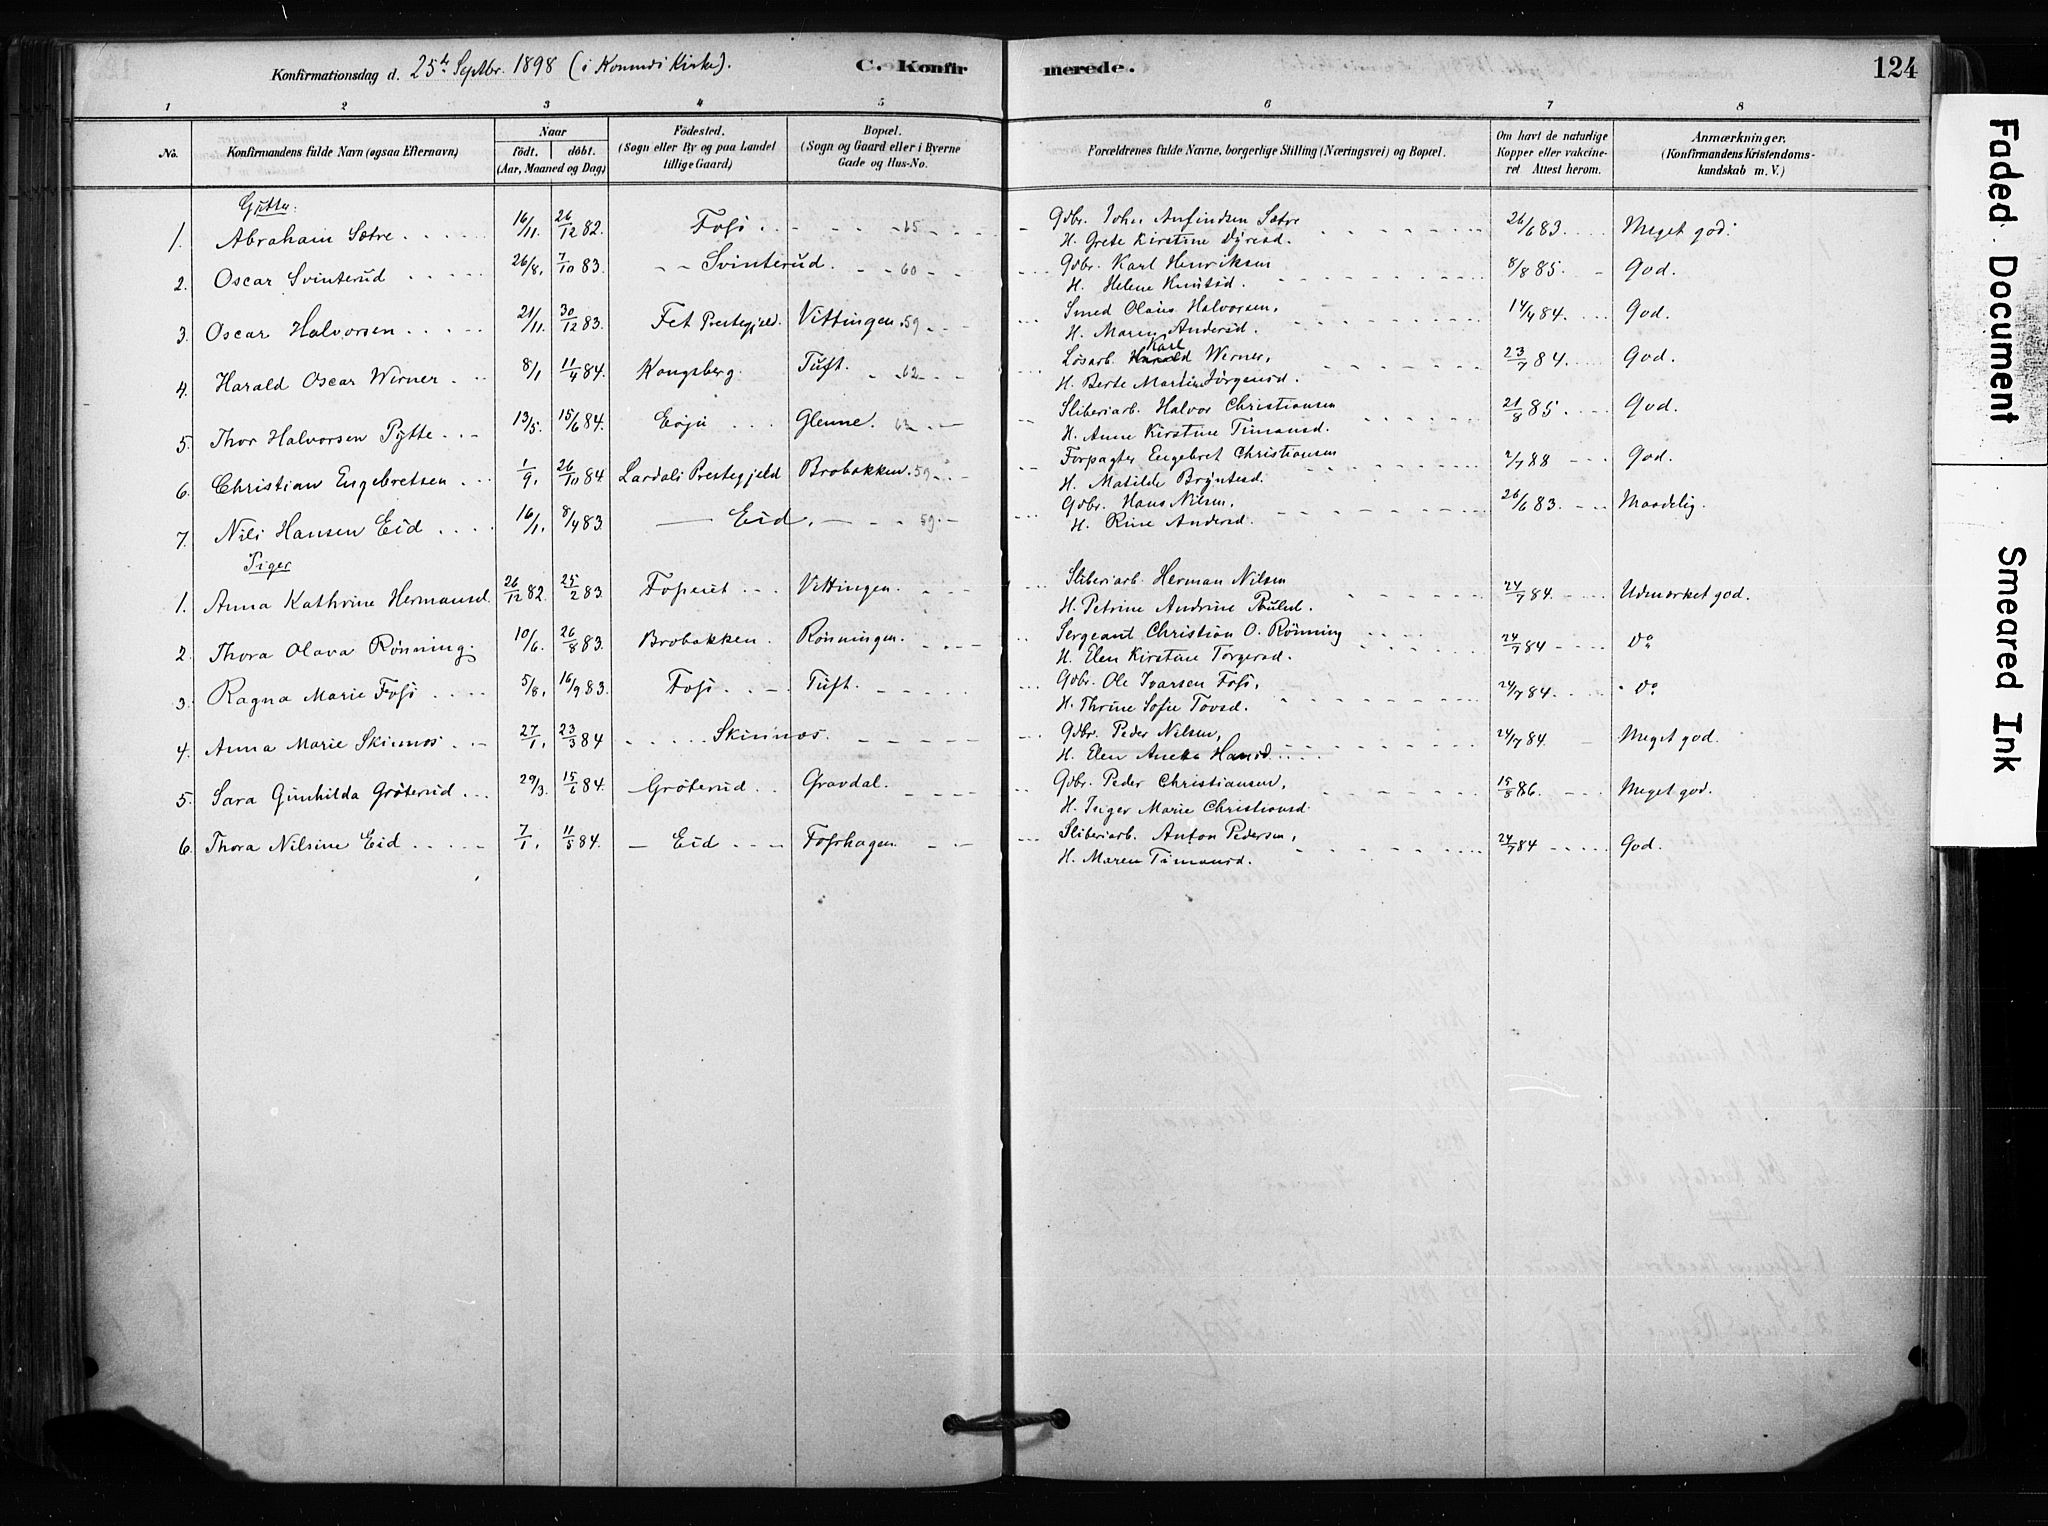 Konfirmationsdag d. 25de Septbr. 1898 (i Komnes Kirke). C. Konfirmerede. 124
1 2 3 4 5 6 7 8
No. Konfirmandens fulde Navn (ogsaa Efternavn) Naar født. døbt. (Aar, Maaned og Dag) Födested. (Sogn eller By og paa Landet tillige Gaard) Bopæl. (Sogn og Gaard eller i Byerne Gade og Hus-No. Forældrenes fulde Navne, borgerlige Stilling (Næringsvei) og Bopæl. Om havt de naturlige Kopper eller vakcineret Attest herom. Anmærkninger, (Konfirmandens Kristendomskundskab m. V.)
Gutter:
1. Abraham Sætre 16/11. 26/12 82. Foss 65 Gdbr. John Anfindsen Sætre 26/6 83 Meget god.
H. Grete Kirstine Dyresd.
2. Oscar Svinterud 26/8. 7/10 83. Svinterud 60 Gdbr. Karl Henriksen 8/8 85 God.
H. Helene Knutsd.
3. Oscar Halvorsen 21/11. 30/12 83. Fet Prestegjeld Vittingen 59 Smed Olaus Halvorsen, 14/4 84. God.
H. Maren Andersd.
4. Harald Oscar Werner 8/1 11/4 84. Kongsberg Tuft. 62 Løsarb. Karl Werner, 23/7 84. God.
H. Berte Martine Jørgensd.
5. Thor Halvorsen Pytte 13/5. 15/6 84. Glenne. 62 Sliberiarb. Halvor Christiansen 21/8 85 God.
H. Anne Kirstine Timansd.
6. Christian Engebretsen 1/9. 26/10 84 Lardals Prestegjeld Brobakken 59 Forpagter Engebret Christiansen 2/7 88 God.
H. Matilde Bryntesd.
7. Nils Hansen Eid 16/1. 8/4 83. Eid. 59 Gdbr. Hans Nilsen, 26/6 83. Maadelig.
H. Rine Andersd.
Piger
1. Anna Kathrine Hermansd. 26/12 82. 25/2 83. Foseiet Vittingen Sliberiarb. Herman Nilsen 24/7 84. Udmærket god.
H. Petrine Andrine Paulsd.
2. Thora Olava Rønning. 10/6. 26/8 83. Brobakken. Rønningen. Sergeant Christian O. Rønning 24/7 84 Do
H. Elen Kirstine Torgersd.
3. Ragna Marie Foss 5/8. 16/9 83. Foss Tuft. Gdbr. Ole Ivarsen Foss, 24/7 84. Do
H. Thrine Sofie Tovsd.
4. Anna Marie Skinnes 27/1. 23/3 84 Skinnes Gdbr. Peder Nilsen, 24/7 84. Meget god.
H. Elen Aneka Hansd.
5. Sara Gunhilda Grøterud 29/3. 15/6 84. Grøterud Gravdal. Gdbr. Peder Christiansen, 15/8 86. Meget god.
H. Inger Marie Christiansd.
6. Thora Nilsine Eid 7/1. 11/5 84. Eid Foshagen Sliberiarb. Anton Pedersen, 24/7 84 God.
H. Maren Timansd.
Faded Document
Smeared Ink